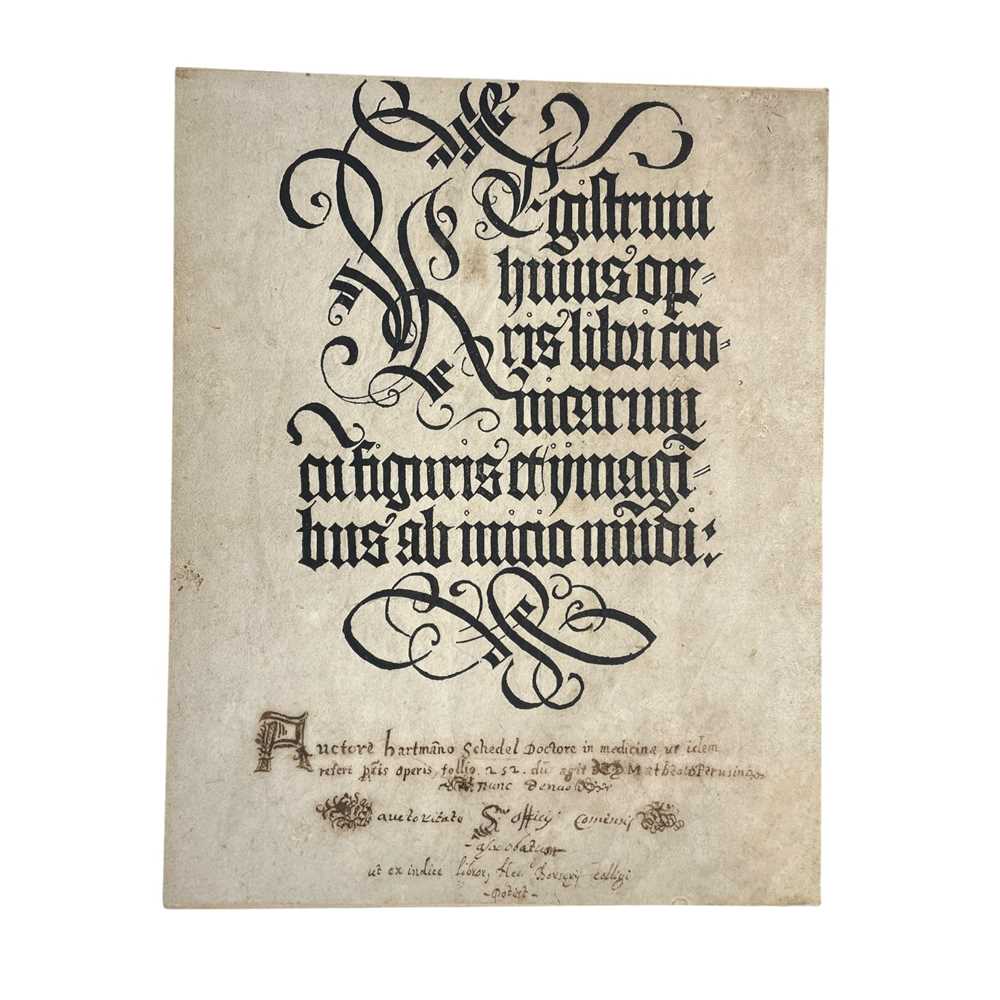 REgistrum
huius ope=
ris libri cro=
nicarum
cū figuris et ymagi=
bus ab inicio mūdi:
Auctore hartmāno Schedel Doctore in medicina ut idem
refert operis follio 252. dū agit D Matheolo Perusino
nunc denuo
auctoritate Sti officij Comensis
aprobatum
ut ex indice libror, colligi
potest